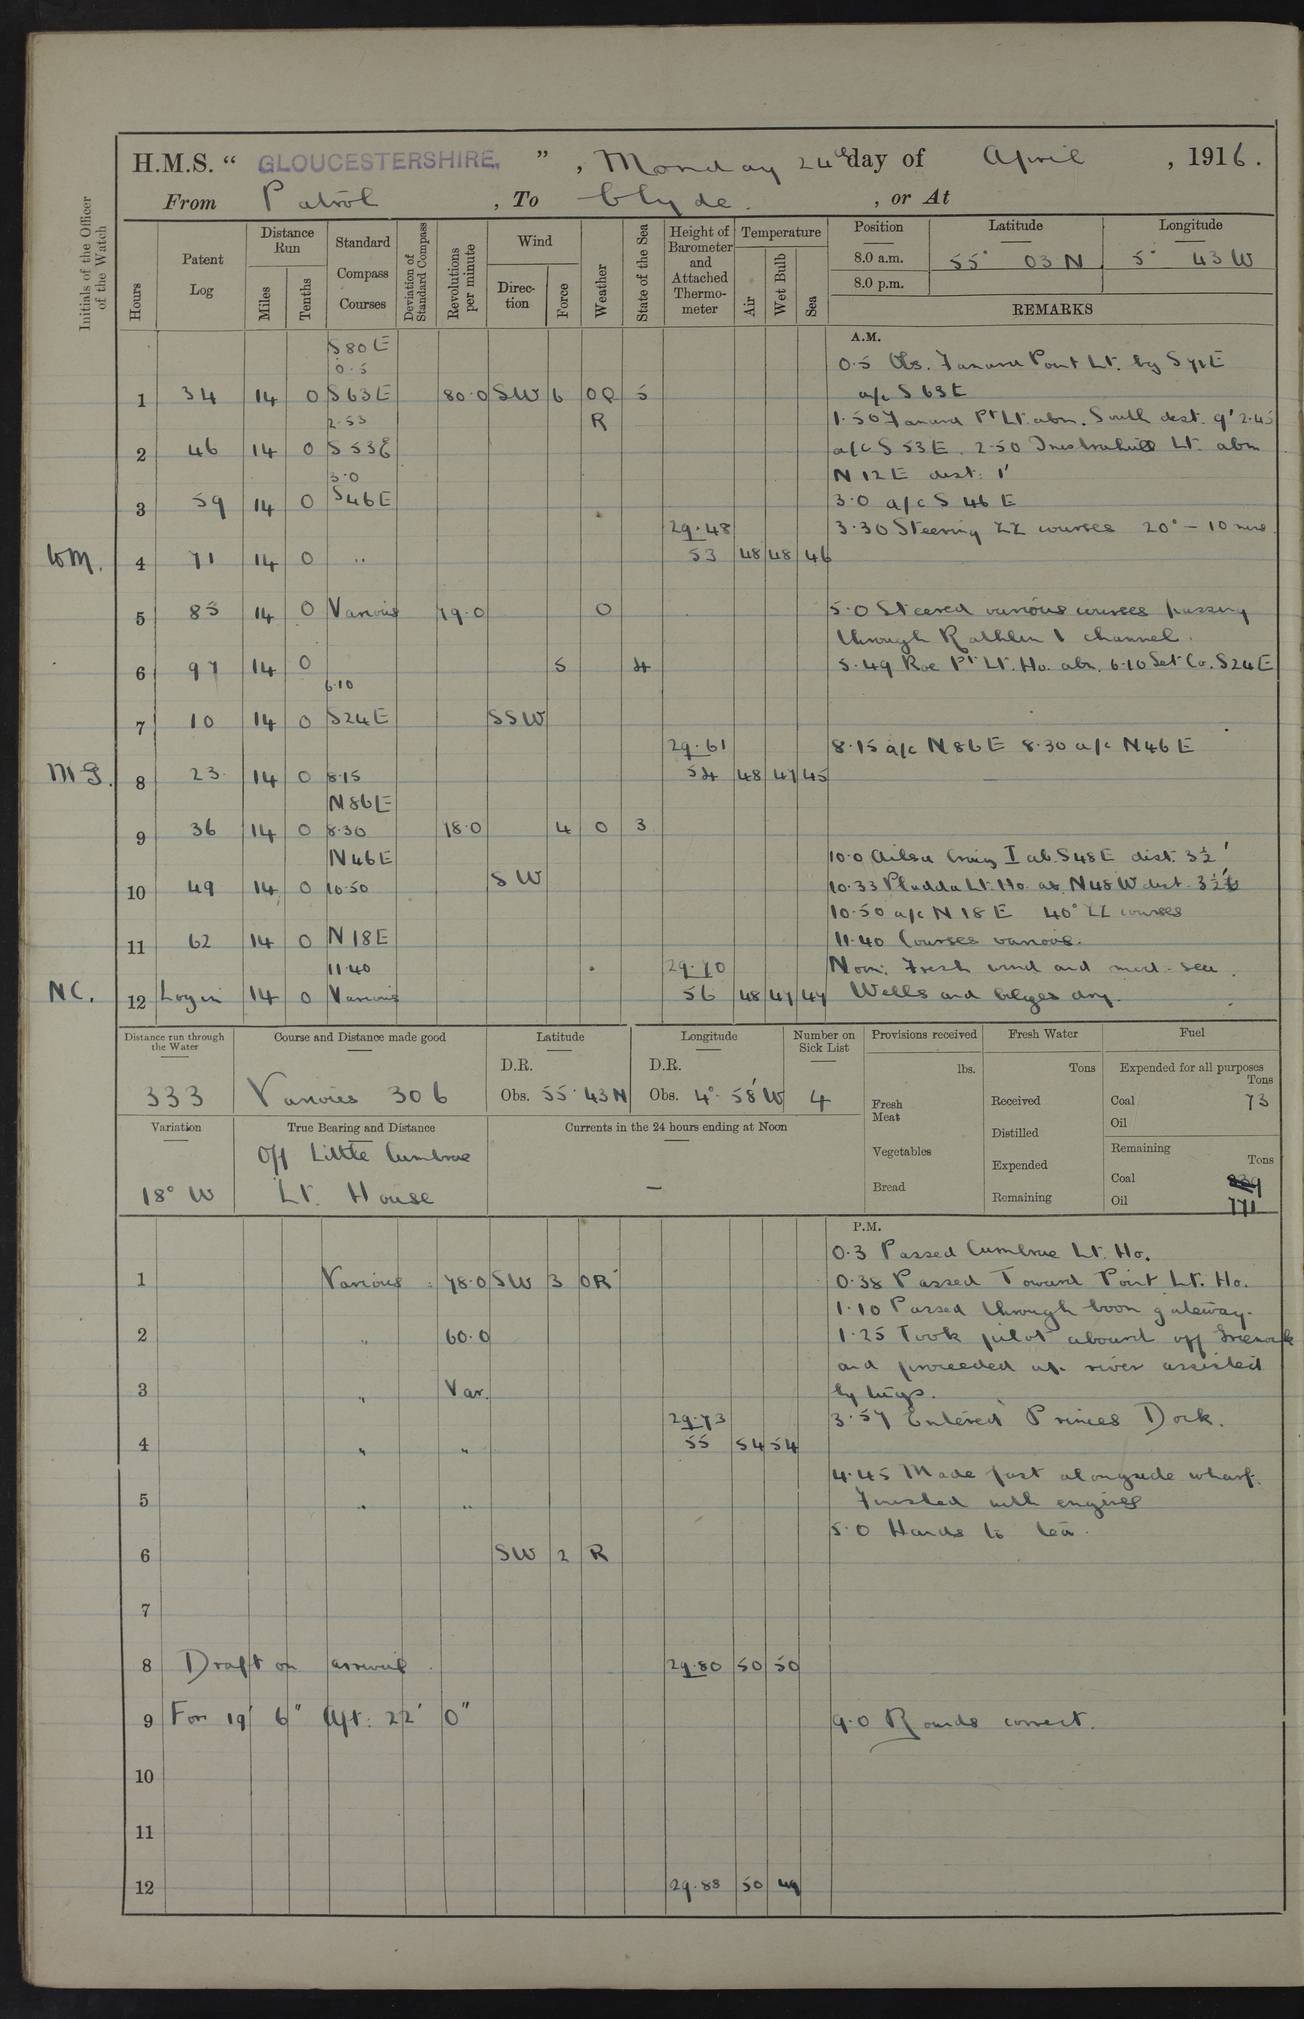 H.M.S. “ GLOUCESTERSHIRE. ” , Monday 24th day of April , 1916.
From Patrol , To Clyde. , or At
Initials of the Officer of the Watch
Hours
Patent Log
Distance Run
Miles
Tenths
Standard Compass Courses
Deviation of Standard Compass
Revolutions per minute
Wind
Direction
Force
Weather
State of the Sea
Height of Barometer and Attached Thermometer
Temperature
Air
Wet Bulb
Sea
Position Latitude Longitude
8.0 a.m. 55° 03 N 5° 43 W
8.0 p.m.
REMARKS
A.M.
S80E
0.5 0.5 Obs. Fanard Point Lt. by S71E
1 34 14 0 S63E 80.0 SW 6 OQ 5 a/c S 63 E
2.53 R 1.50 Fanard Pt Lt. abm. South dist.
2 46 14 0 S53E a/c S 53 E. 2.50 Inistrahull Lt. abm
3.0 N 12 E dist. 1'
3 59 14 0 S46E 3.0 a/c S 46 E
29.48 3.30 Steering ZZ courses 20° – 10 mins.
WM. 4 71 14 0 ,, 53 48 48 46
5 85 14 0 Various 79.0 O 5.0 Steered various courses passing
through Rathlin I channel.
6 97 14 0 5 4 5.49 Rae Pt Lt. Ho. abm. 6.10 Set Co. S24E
6.10
7 10 14 0 S24E SSW
29.61 8.15 a/c N86E 8.30 a/c N46E
MG. 8 23 14 0 8.15 54 48 47 45
N86E
9 36 14 0 8.30 78.0 4 O 3
N46E 10.0 Ailsa Craig I ab. S48E dist. 3½'
10 49 14 0 10.50 SW 10.33 Pladda Lt. Ho. ab. N48W dist. 3½'
10.50 a/c N 18 E 40° ZZ courses
11 62 14 0 N18E 11.40 Courses various.
11.40 29.70 Noon. Fresh wind and mod. sea.
NC. 12 Log in 14 0 Various 56 48 47 47 Wells and bilges dry.
Distance run through the Water
333
Course and Distance made good
Various 306
Latitude
D.R.
Obs. 55° 43 N
Longitude
D.R.
Obs. 4° 58' W
Number on Sick List
4
Provisions received
lbs.
Fresh Meat
Vegetables
Bread
Fresh Water
Tons
Received
Distilled
Expended
Remaining
Fuel
Expended for all purposes
Tons
Coal 73
Oil
Remaining
Tons
Coal
Oil 771
Variation
18° W
True Bearing and Distance
Off Little Cumbrae
Lt. House
Currents in the 24 hours ending at Noon
—
P.M.
0.3 Passed Cumbrae Lt. Ho.
1 Various 78.0 SW 3 OR 0.38 Passed Toward Point Lt. Ho.
1.10 Passed through boom gateway.
2 ,, 60.0 1.25 Took pilot aboard off Greenock
and proceeded up river assisted
3 ,, Var. by tugs.
29.73 3.57 Entered Princes Dock.
4 ,, ,, 55 54 54
4.45 Made fast alongside wharf.
5 ,, ,, Finished with engines
5.0 Hands to tea.
6 SW 2 R
7
8 Draft on arrival 29.80 50 50
9 For 19' 6" Aft: 22' 0" 9.0 Rounds correct.
10
11
12 29.88 50 49